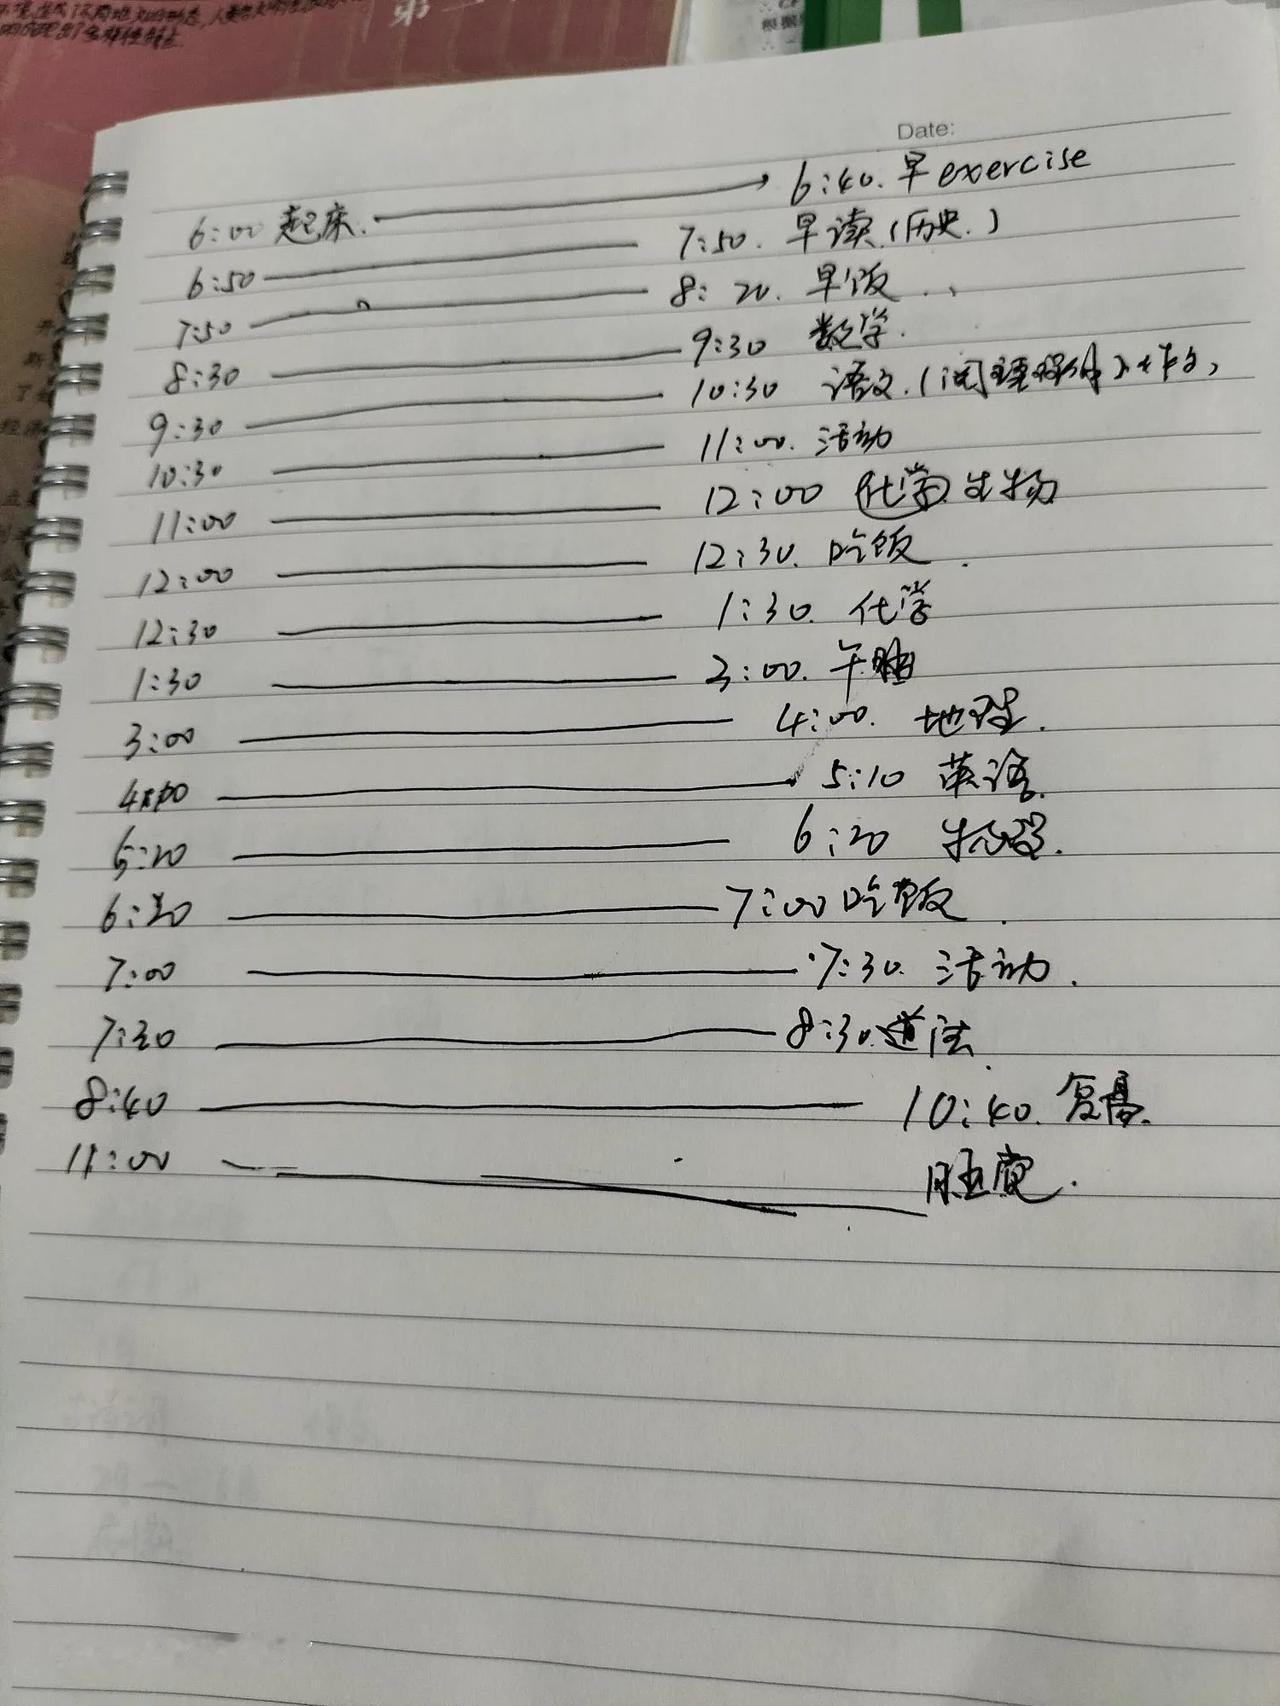 第
Date:
6:00 起床. 6:40. 早exercise
6:50 7:50. 早读.(历史.)
7:50 8:20. 早饭
8:30 9:30 数学.
9:30 10:30 语文.(阅理 作文,
10:30 11:00. 活动
11:00 12:00 化学 生物
12:00 12:30. 吃饭.
12:30 1:30. 化学
1:30 3:00. 午睡
3:00 4:00. 地理.
4:00 5:10 英语.
5:20 6:20 物理.
6:20 7:00 吃饭.
7:00 7:30. 活动.
7:30 8:30. 道法
8:40 10:40.
11:00 睡觉.